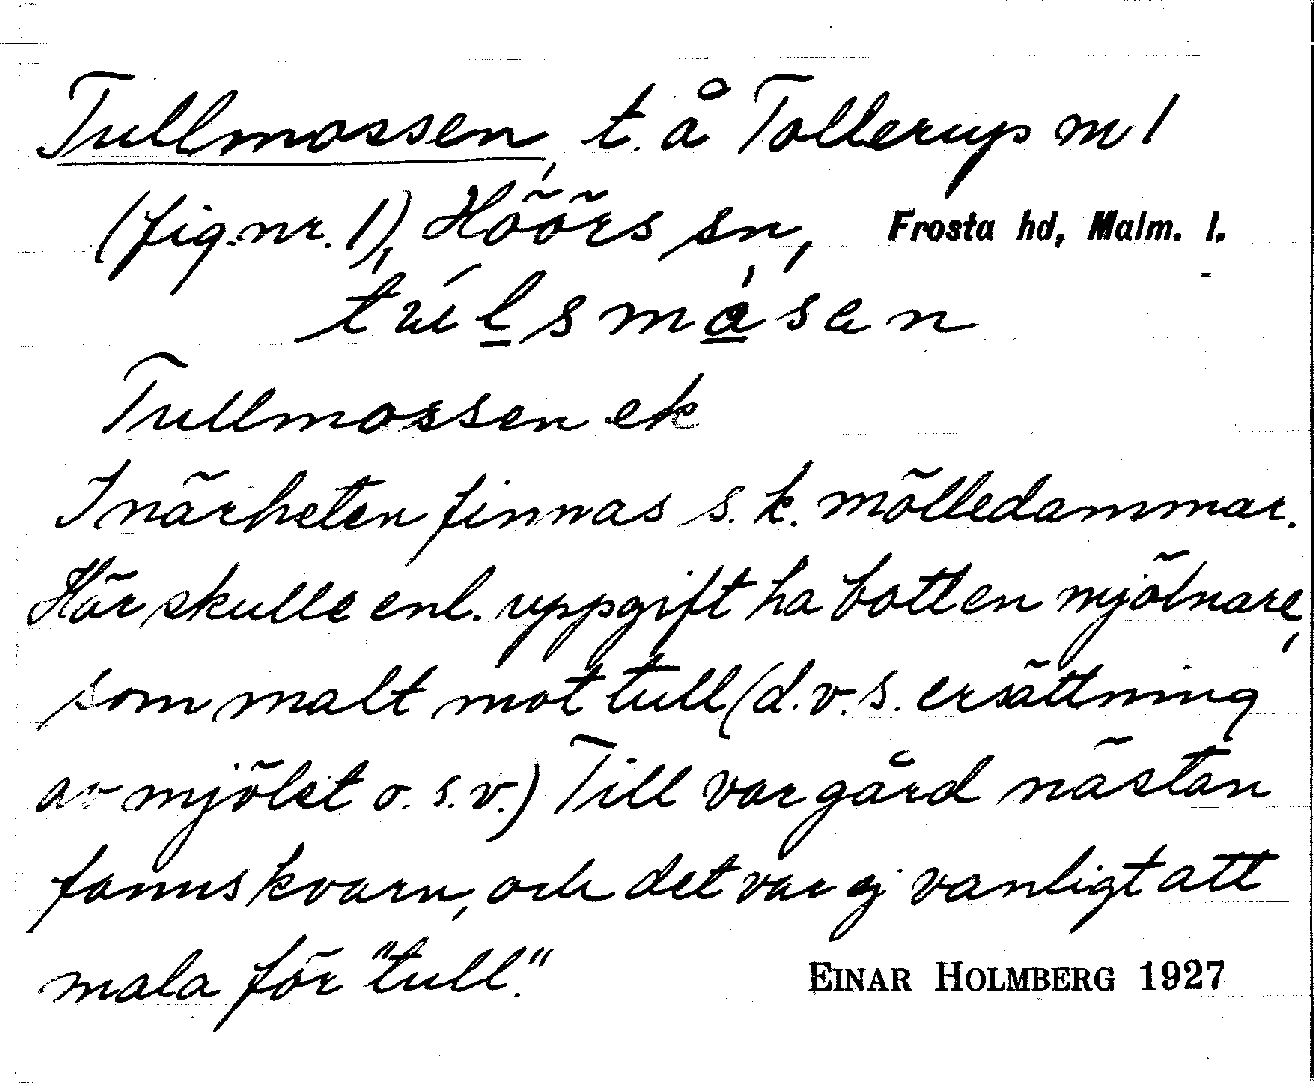 Tullmossen, t. å Tollerup m 1
(fig.nr. 1), Höörs sn, Frosta hd, Malm. l.
túlsmåsen
Tullmossen ek
I närheten finnas s. k. mölledammar.
Här skulle enl. uppgift ha bott en mjölnare,
som malt mot tull (d.v.s. ersättning
av mjölet o.s.v.) Till var gård nästan
fanns kvarn, och det var ej vanligt att
mala för "tull".
EINAR HOLMBERG 1927